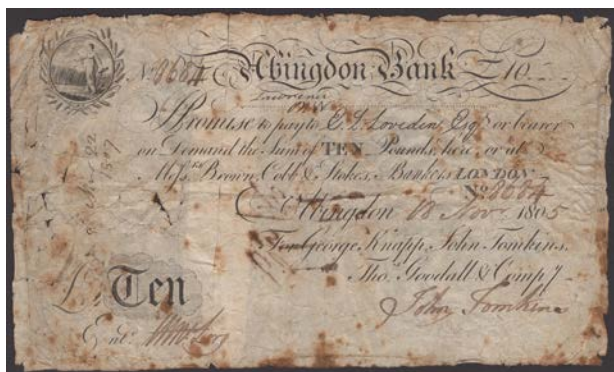 No 8684 Abingdon Bank £10
I Promise to pay to E. L. Loveden, Esqr. or bearer
on Demand the Sum of TEN Pounds, here, or at
Messrs. Brown, Cobb & Stokes, Bankers LONDON
No 8684
Abingdon 18 Nov. 1805
For George Knapp, John Tomkins,
Thos. Goodall & Compy
£ Ten
John Tomkins
Entd.